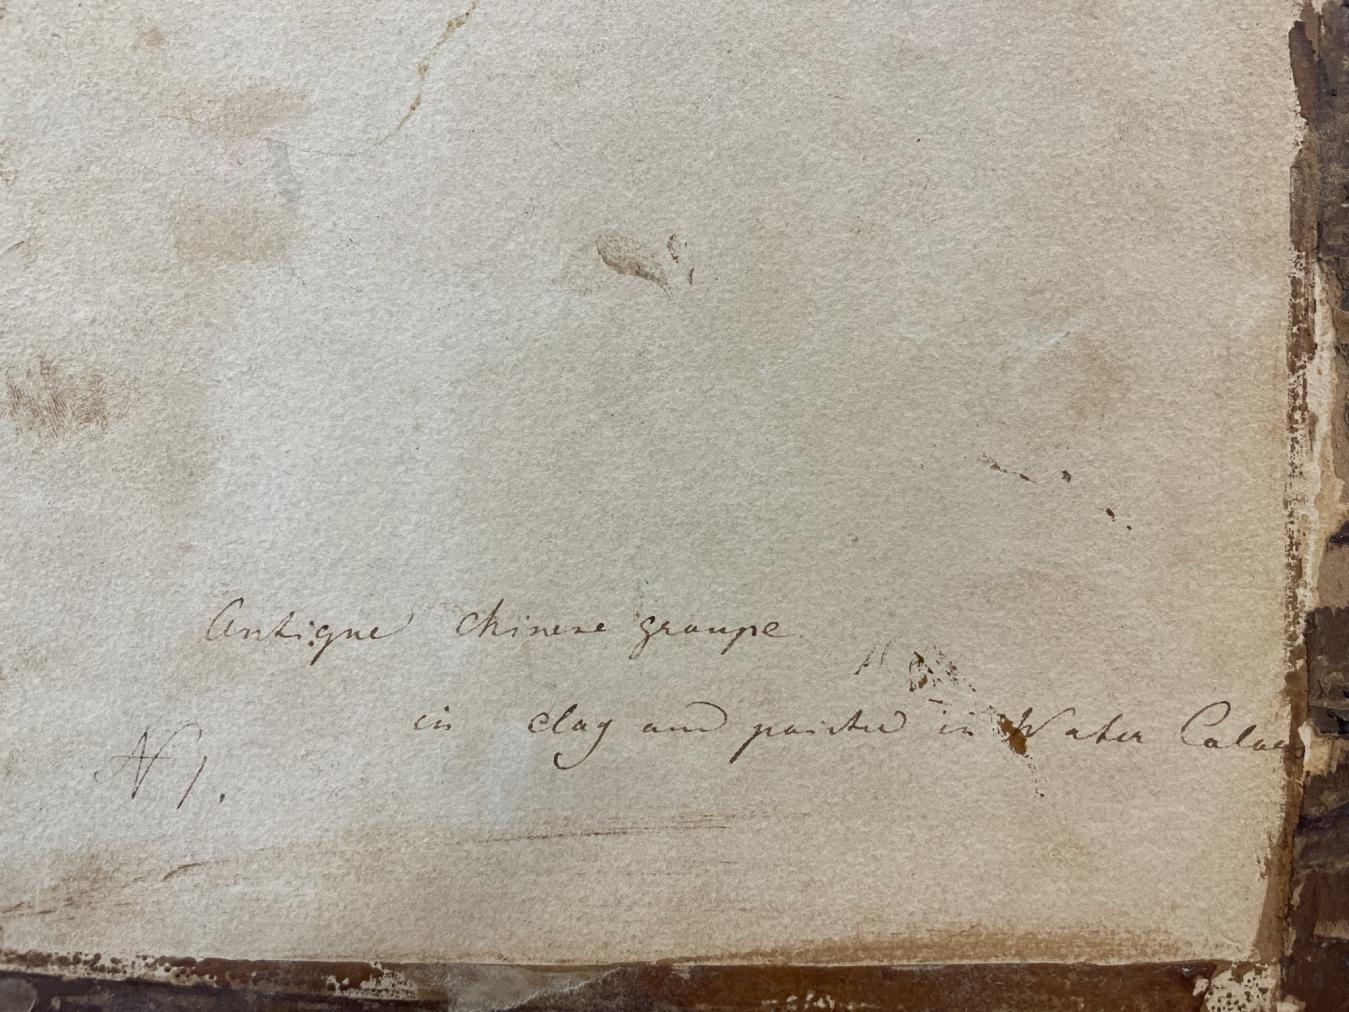 Antique Chinese groupe
in clay and painted in Water Colou
N 1.